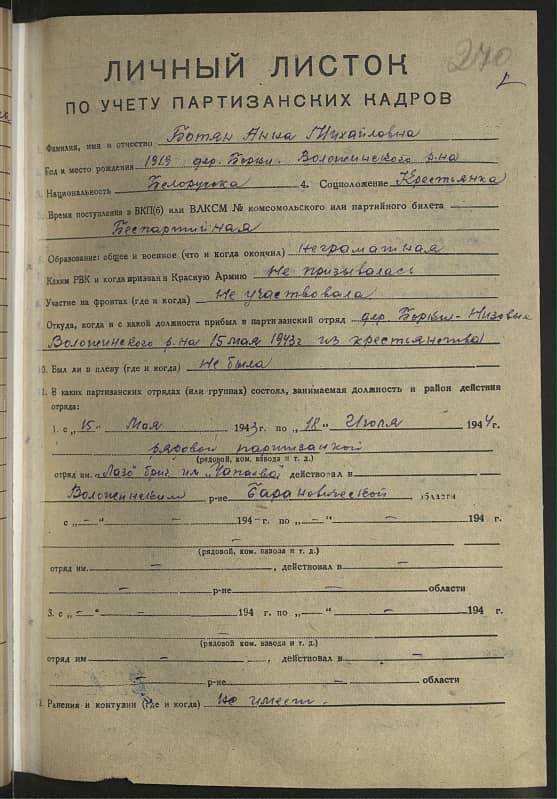 270
ЛИЧНЫЙ ЛИСТОК
ПО УЧЕТУ ПАРТИЗАНСКИХ КАДРОВ
Фамилия, имя и отчество Ботян Анна Михайловна
Год и место рождения 1919 дер. Воложинского р-на
Национальность Белоруска 4. Соцположение Крестьянка
Время поступления в ВКП(б) или ВЛКСМ № комсомольского или партийного билета
Беспартийная
Образование: общее и военное (что и когда окончил) неграматная
Каким РВК и когда призван в Красную Армию Не призывалась
Участие на фронтах (где и когда) Не участвовала
Откуда, когда и с какой должности прибыл в партизанский отряд дер.
Воложинского р-на 15 мая 1943г из крестьянства
10. Был ли в плену (где и когда) Не была
1. В каких партизанских отрядах (или группах) состоял, занимаемая должность и район действия
отряда:
1. с „15" Мая 1943г. по „18" Июля 1944г.
рядовой партизанкой
(рядовой, ком. взвода и т. д.)
отряд им. „Лазо" бриг им „Чапаева" действовал в
Воложинским р-не Барановической области
с „—" — 194-г. по „—" — 194 г.
—
(рядовой, ком. взвода и т. д.)
отряд им. —, действовал в —
— р-не — области
3. с „—" — 194 г. по „—" — 194 г.
(рядовой ком. взвода и т. д.)
отряд им — , действовал в —
— р-не — области
Ранения и контузии (где и когда) не имеет.